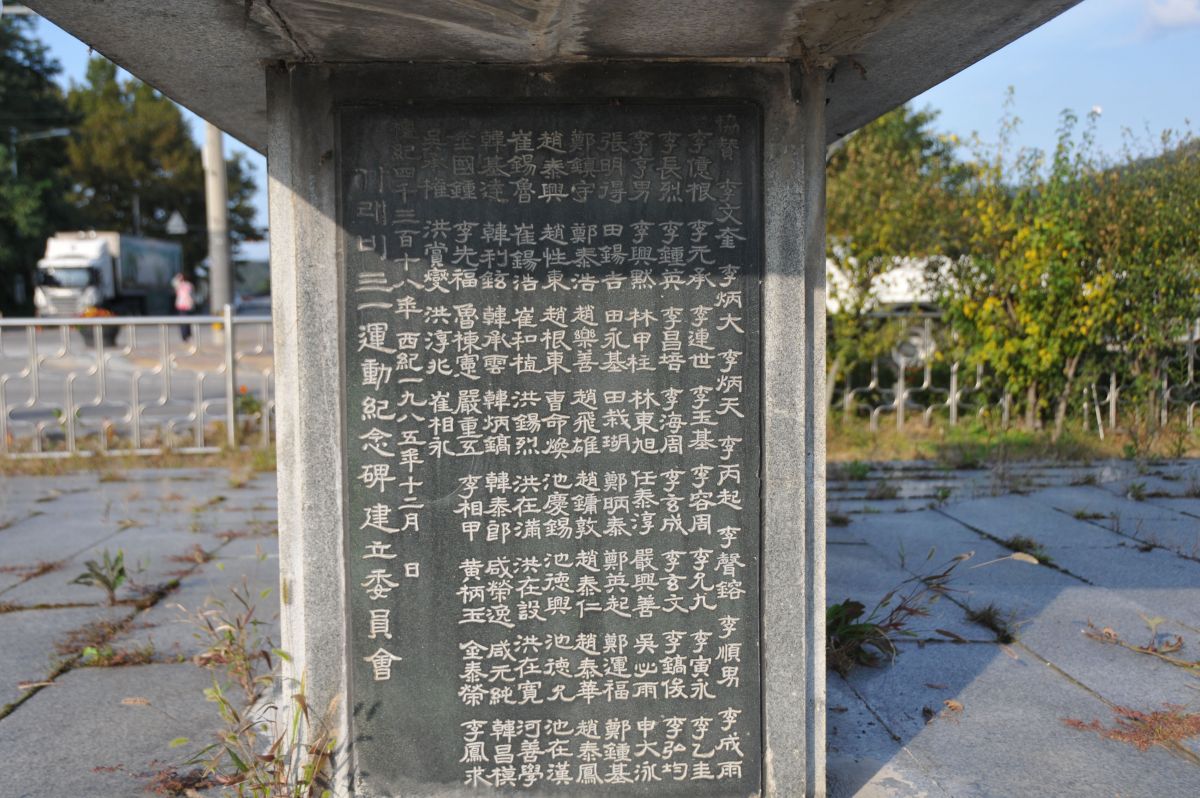 協贊 李文奎 李炳大 李炳天 李丙起 李聲鎔 李順男 李成雨
李億根 李元承 李連世 李玉基 李容周 李允九 李寅永 李乙圭
李長烈 李鍾英 李昌培 李海周 李玄成 李玄文 李鎬俊 李弘均
李亨男 李興默 林甲柱 林東旭 任泰淳 嚴興善 吳必雨 申大泳
張明得 田錫吉 田永基 田栽玥 鄭昞泰 鄭英起 鄭運福 鄭鍾基
鄭鎭守 鄭泰浩 趙樂善 趙飛雄 趙鏞敦 趙泰仁 趙泰華 趙泰鳳
趙泰興 趙性東 趙根東 曺命煥 池慶錫 池德興 池德允 池在漢
崔錫魯 崔錫浩 崔和植 洪錫烈 洪在滿 洪在設 洪在寬 河善學
韓基達 韓利錫 韓承雲 韓炳鎬 韓泰郎 咸榮逸 咸元純 韓昌模
金國鍾 李先福 魯棟憲 嚴重五 李相甲 黃柄玉 金泰榮 李鳳求
洪賞燮 洪淳兆 崔相永
檀紀四千三百十八年 西紀一九八五年十二月 日
가래비 三一運動紀念碑建立委員會